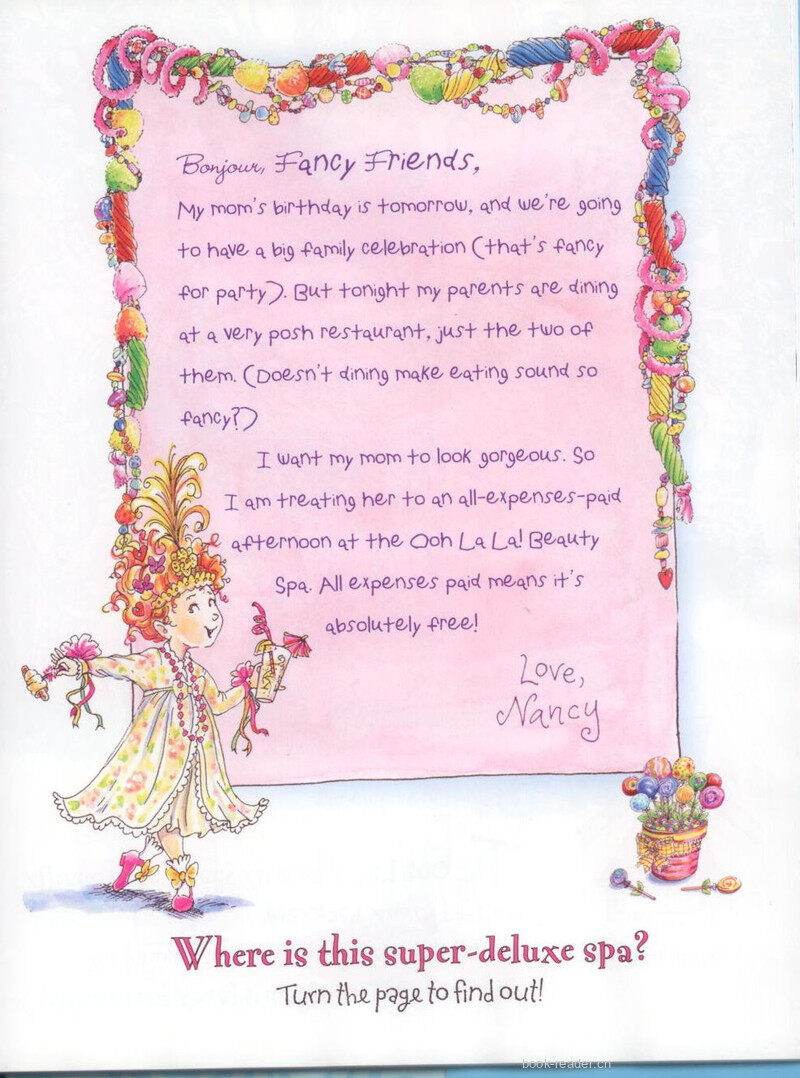 Bonjour, Fancy Friends,
My mom's birthday is tomorrow, and we're going
to have a big family celebration (that's fancy
for party). But tonight my parents are dining
at a very posh restaurant, just the two of
them. (Doesn't dining make eating sound so
fancy?)
I want my mom to look gorgeous. So
I am treating her to an all-expenses-paid
afternoon at the Ooh La La! Beauty
Spa. All expenses paid means it's
absolutely free!
Love,
Nancy
Where is this super-deluxe spa?
Turn the page to find out!
book-reader.cn